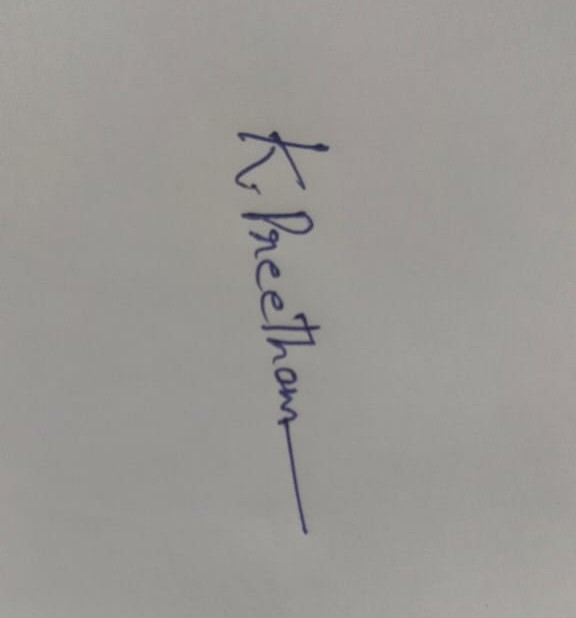 K. Preetham